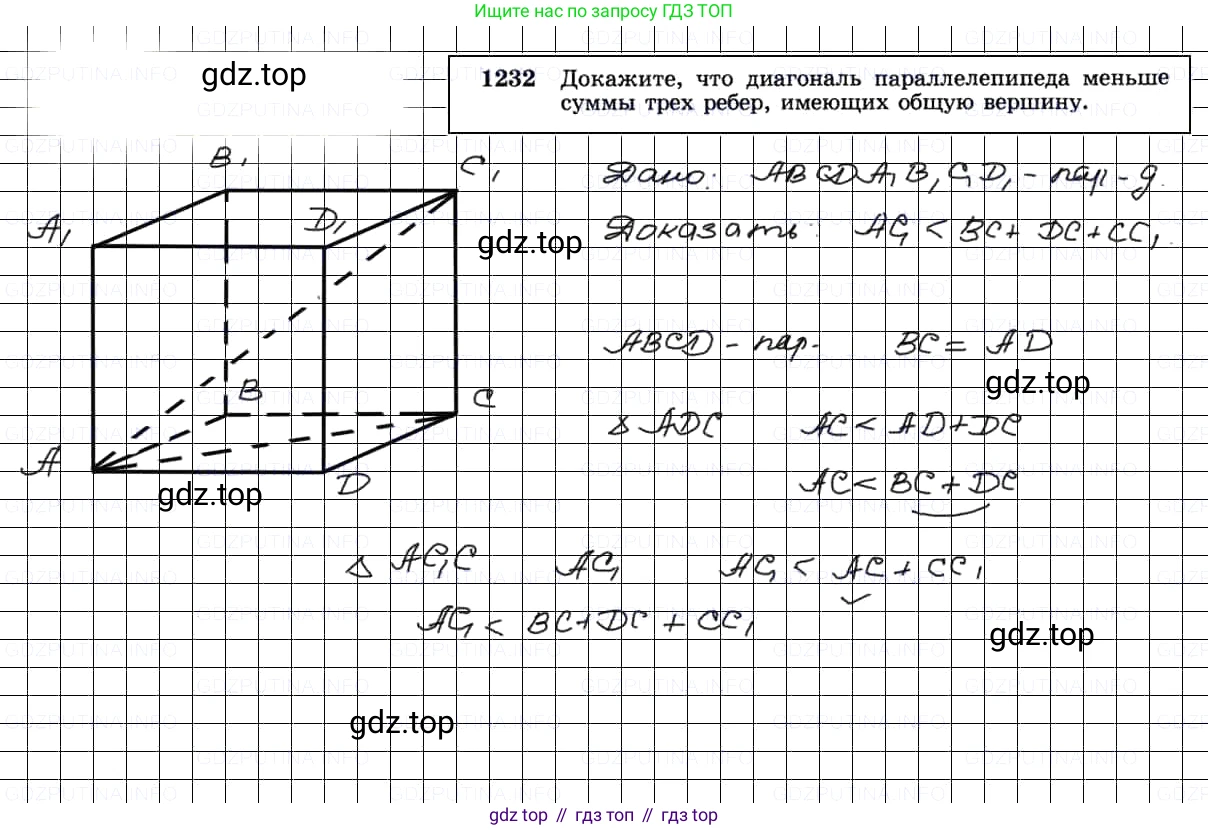 Ищите нас по запросу ГДЗ ТОП
gdz.top
1232 Докажите, что диагональ параллелепипеда меньше
суммы трех ребер, имеющих общую вершину.
B₁
C₁
Дано: ABCDA₁B₁C₁D₁ - пар-д.
A₁
D₁
gdz.top
Доказать: AC₁ < BC + DC + CC₁.
ABCD - пар. BC = AD
gdz.top
B
C
Δ ADC AC < AD + DC
A
D
gdz.top
AC < BC + DC
Δ AC₁C AC₁ AC₁ < AC + CC₁
AC₁ < BC + DC + CC₁
gdz.top
gdz.top
GDZPUTINA.INFO
gdz top // гдз топ // гдз top